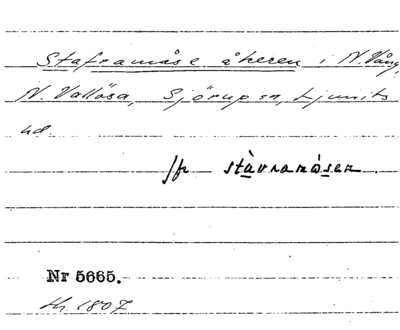 Staframåse åkeren i N. Vång,
N. Vallösa, Sjörups sn, Ljunits
hd
/fr stàvramåsen.
Nr 5665.
h. 1807